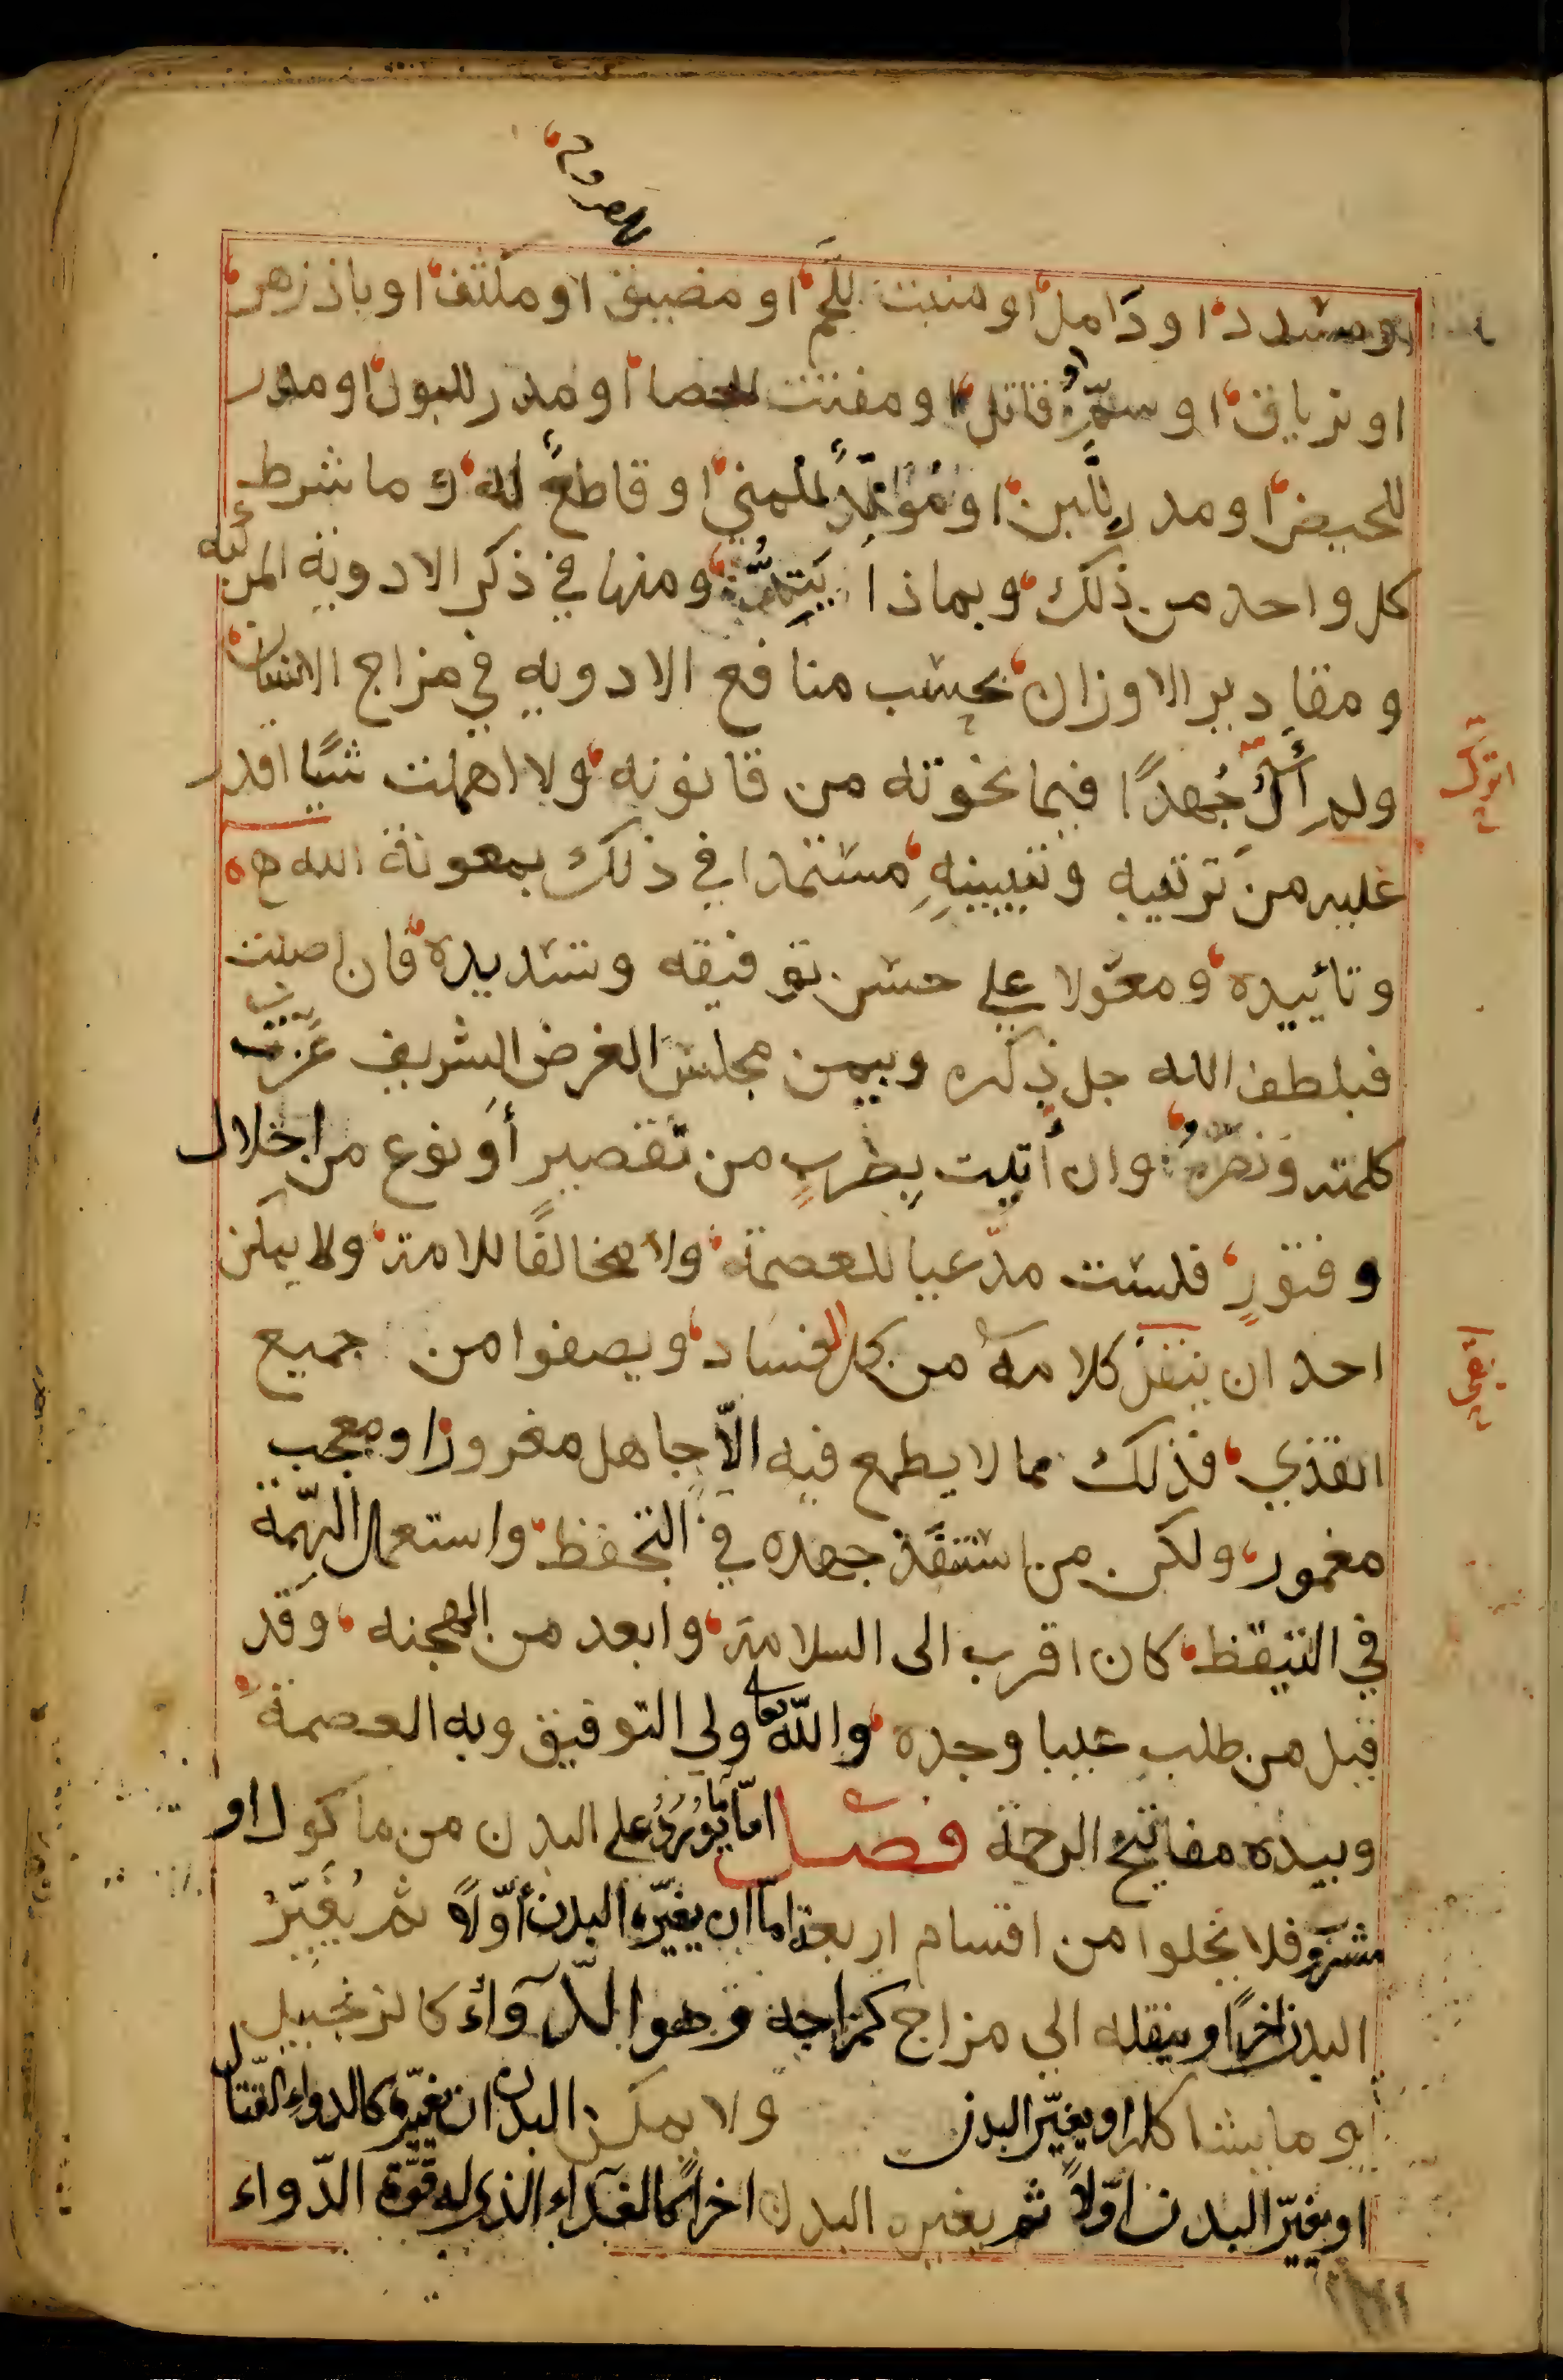 او مسدد او دامل او منبت للّحم او مضيق او ملثف او باذزهر
او ترياق او سمّ او قاتل او مفتت للحصا او مدر للبول او مدر
للحيض او مدر للّبن او مُوَلِّدً للمني او قاطعً له وما شرط
كل واحد من ذلك وبماذا ومنها في ذكر الادوية المركبه
ومقادير الاوزان بحسب منافع الادويه في مزاج الانسان
ولم أَلُ جُهدًا فيما نحوته من قانونه ولا اهملت شيًا اقدر
عليه من ترتيبه وتبيينهِ مستمدا في ذلك بمعونة الله
وتأييده ومعوّلا علي حسن توفيقه وتسديده فان اصبت
فبلطف الله جل ذكره وبيمن مجلس الغرض الشريف
كلمته وان أتيت بضربٍ من تقصير أو نوع من اخلال
وفتورٍ فلست مدّعيا للعصمة ولا مخالفًا للامة ولا يمكن
احد ان ينفذ كلامه من كل الفساد ويصفوا من جميع
القذي فذلك مما لا يطمع فيه الاّ جاهل مغرور او معجب
مغمور ولكن من استنفذ جهده في التحفظ واستعمال الهمّة
في التيقظ كان اقرب الى السلامة وابعد من الهجنه وقد
قيل من طلب عيبا وجده والله تعا ولي التوفيق وبه العصمة
وبيده مفاتيح الرحمة فصل امّا ما يُورَدُ على البدن من ماكول او
مشروب فلا يخلوا من اقسام اربعة امّا ان يغيّره البدن أوّلاً ثم يُغَيّرُ
البدن اخرًا وينقله الي مزاج كمزاجه وهو الدّوآء كالزنجبيل
او ما يشاكله او يغيّر البدن ولا يمكن البدن ان يغيّره كالدواء القتّال
او يغيّر البدن اوّلاً ثم يغيره البدن اخرًا كالغذآء الذي له قوّة الدّواء